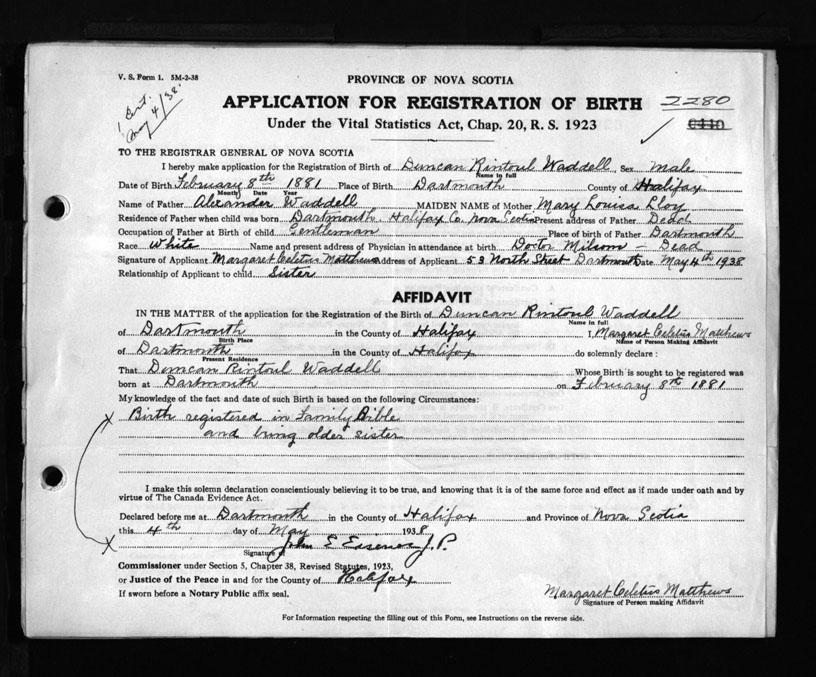 V. S. Form 1. 5M-2-38
1 Cert.
May 4/38.
PROVINCE OF NOVA SCOTIA
APPLICATION FOR REGISTRATION OF BIRTH 2280
Under the Vital Statistics Act, Chap. 20, R. S. 1923
TO THE REGISTRAR GENERAL OF NOVA SCOTIA
I hereby make application for the Registration of Birth of Duncan Rintoul Waddell, Sex Male
Name in full
Date of Birth February 8th 1881 Place of Birth Dartmouth County of Halifax
Month Date Year
Name of Father Alexander Waddell MAIDEN NAME of Mother Mary Louisa Lloy
Residence of Father when child was born Dartmouth, Halifax Co. Nova Scotia Present address of Father Dead
Occupation of Father at Birth of child Gentleman Place of birth of Father Dartmouth
Race White Name and present address of Physician in attendance at birth Doctor Milsom - Dead
Signature of Applicant Margaret Celetus Matthews Address of Applicant 53 North Street Dartmouth Date May 4th 1938
Relationship of Applicant to child Sister
AFFIDAVIT
IN THE MATTER of the application for the Registration of the Birth of Duncan Rintoul Waddell
Name in full
of Dartmouth in the County of Halifax I, Margaret Celetus Matthews
Birth Place Name of Person Making Affidavit
of Dartmouth in the County of Halifax do solemnly declare:
Present Residence
That Duncan Rintoul Waddell Whose Birth is sought to be registered was
born at Dartmouth on February 8th 1881
My knowledge of the fact and date of such Birth is based on the following Circumstances:
X Birth registered in Family Bible
and being older sister
I make this solemn declaration conscientiously believing it to be true, and knowing that it is of the same force and effect as if made under oath and by
virtue of The Canada Evidence Act.
Declared before me at Dartmouth in the County of Halifax and Province of Nova Scotia
this 4th day of May 1938
X Signature of John E J.P.
Commissioner under Section 5, Chapter 38, Revised Statutes, 1923,
or Justice of the Peace in and for the County of Halifax
If sworn before a Notary Public affix seal.
Margaret Celetus Matthews
Signature of Person making Affidavit
For Information respecting the filling out of this Form, see Instructions on the reverse side.